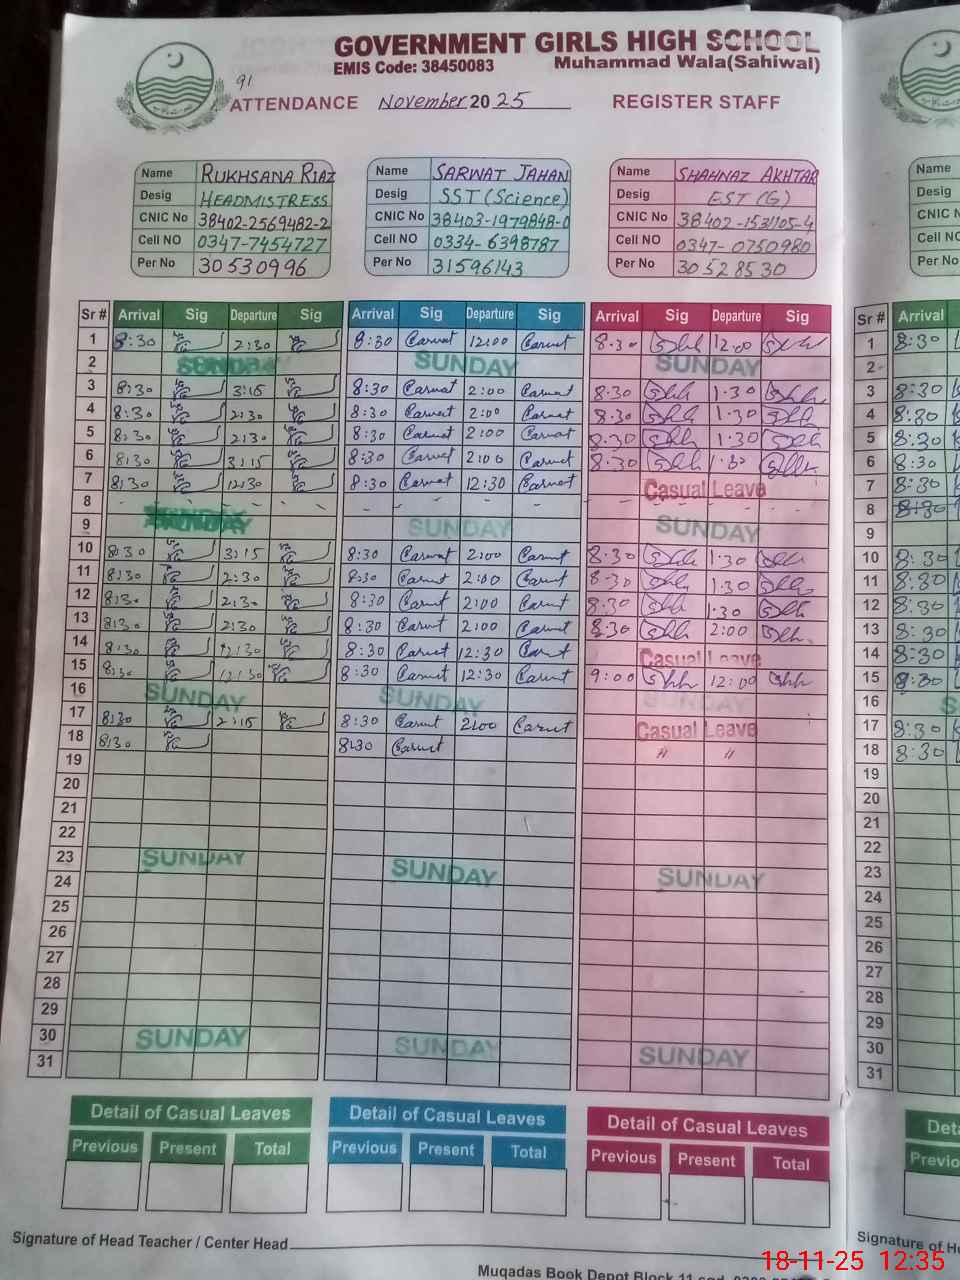 GOVERNMENT GIRLS HIGH SCHOOL
EMIS Code: 38450083 Muhammad Wala(Sahiwal)
91
ATTENDANCE November 2025 REGISTER STAFF
Name RUKHSANA RIAZ
Desig HEADMISTRESS
CNIC No 38402-2569482-2
Cell NO 0347-7454727
Per No 30530996
Name SARWAT JAHAN
Desig SST (Science)
CNIC No 38403-1979848-0
Cell NO 0334-6398787
Per No 31596143
Name SHAHNAZ AKHTAR
Desig EST (G)
CNIC No 38402-1531105-4
Cell NO 0347-0750980
Per No 30528530
Name
Desig
CNIC N
Cell NO
Per No
Sr # Arrival Sig Departure Sig Arrival Sig Departure Sig Arrival Sig Departure Sig Sr # Arrival
1 8:30 2:30 8:30 Carwat 12:00 Carwat 8:30 Shh 12:00 Shh 1 8:30
2 SUNDAY SUNDAY SUNDAY 2
3 8:30 3:15 8:30 Carwat 2:00 Carwat 8:30 Shh 1:30 Shh 3 8:30
4 8:30 2:30 8:30 Carwat 2:00 Carwat 8:30 Shh 1:30 Shh 4 8:30
5 8:30 2:30 8:30 Carwat 2:00 Carwat 8:30 Shh 1:30 Shh 5 8:30
6 8:30 3:15 8:30 Carwat 2:00 Carwat 8:30 Shh 1:30 Shh 6 8:30
7 8:30 12:30 8:30 Carwat 12:30 Carwat Casual Leave 7 8:30
8 8 8:30
9 SUNDAY SUNDAY SUNDAY 9
10 8:30 3:15 8:30 Carwat 2:00 Carwat 8:30 Shh 1:30 Shh 10 8:30
11 8:30 2:30 8:30 Carwat 2:00 Carwat 8:30 Shh 1:30 Shh 11 8:30
12 8:30 2:30 8:30 Carwat 2:00 Carwat 8:30 Shh 1:30 Shh 12 8:30
13 8:30 2:30 8:30 Carwat 2:00 Carwat 8:30 Shh 2:00 Shh 13 8:30
14 8:30 12:30 8:30 Carwat 12:30 Carwat Casual Leave 14 8:30
15 8:30 12:30 8:30 Carwat 12:30 Carwat 9:00 Shh 12:00 Shh 15 8:30
16 SUNDAY SUNDAY SUNDAY 16
17 8:30 2:15 8:30 Carwat 2:00 Carwat Casual Leave 17 8:30
18 8:30 8:30 Carwat " " 18 8:30
19 19
20 20
21 21
22 22
23 SUNDAY SUNDAY SUNDAY 23
24 24
25 25
26 26
27 27
28 28
29 29
30 SUNDAY SUNDAY SUNDAY 30
31 31
Detail of Casual Leaves Detail of Casual Leaves Detail of Casual Leaves Deta
Previous Present Total Previous Present Total Previous Present Total Previo
Signature of Head Teacher / Center Head Signature of H
Muqadas Book Depot Block 11
18-11-25 12:35